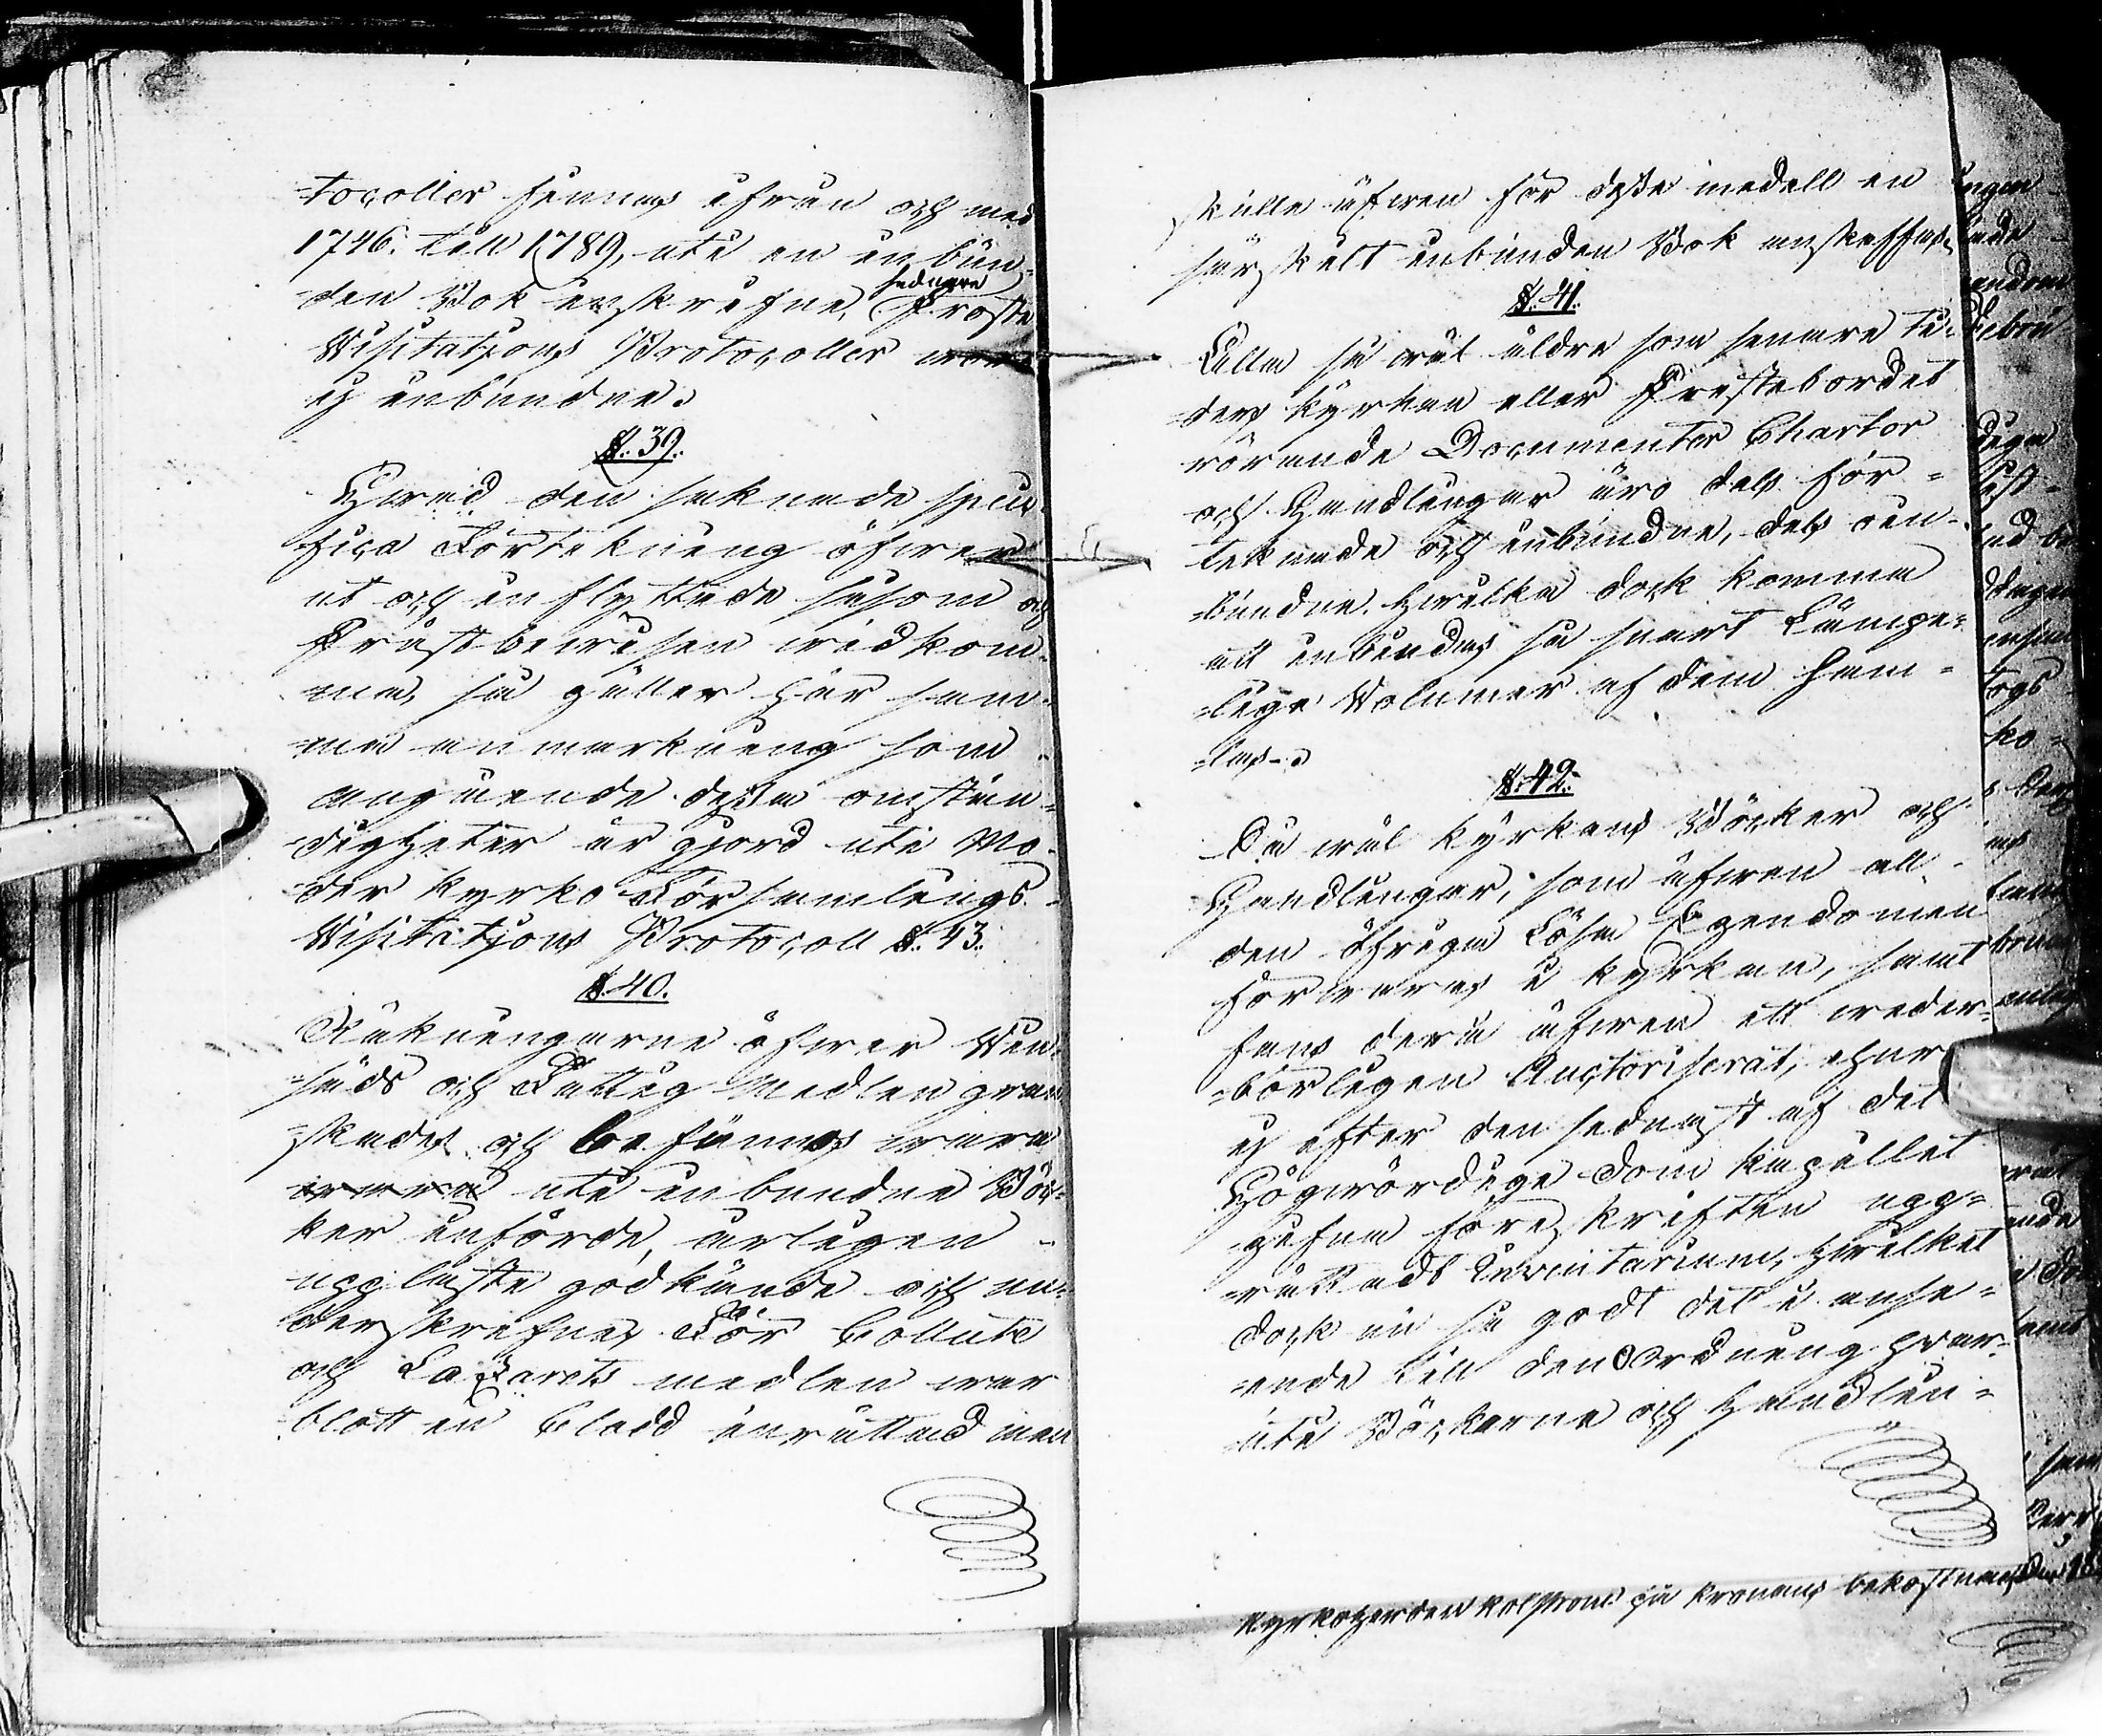 -tocoller finnas ifrån och med
1746. till 1789, uti en inbun-
den Bok inskrifne, sednare Prosts
Visitations Protocoller woro
ej inbundne.
§. 39.
Hwad den saknade speci-
fica Förtekning öfwer
ut och inflyttade såsom och
Prästbewisen widkom-
ma, så gäller här sam-
ma anmerkning som
angående dessa omstän-
digheter är gjord uti Mo-
der kyrko Församlings
Visitations Protocoll §. 43.
§. 40.
Räkningarne öfwer Wen-
säds och Fattig Medlen gran-
skades och befunnos wara
uti inbundne Böc-
ker införde, årligen
upplaste godkände och un-
derskrefne, För Collect
och Lazarets medlen war
blott en Cladd inrättad men
skulle äfwen för dessa medell en
särskilt inbunden Bok anskaffas.
§. 41.
Alla så wäl äldre som senare ti-
ders kyrkan eller Prestebordet
rörande Documenter Chartor
och Handlingar äro dels för-
teknade och inbundne, dels oin-
bundne. hwilka dock komma
att inbindas så snart Lämpe-
-lige Volumer af dem sam-
-las.
§. 42.
Så wäl kyrkans Böcker och
Handlingar, som äfwen all
den öfriga Lösa Egendomen
förwaras i kyrkan, samt
fans derå äfwen ett weder-
-börligen Auctoriserat, ehuru
ej efter den sednast af det
Högwördige Dom kapittlet
gifna föreskriften upp-
-rättadt Inventarium, hwilket
dock än så godt det i anse-
-ende till den Ordning hwar-
uti Böckerne och Handlin-
Kyrkoherden Kolstrom på Kronans bekostnad